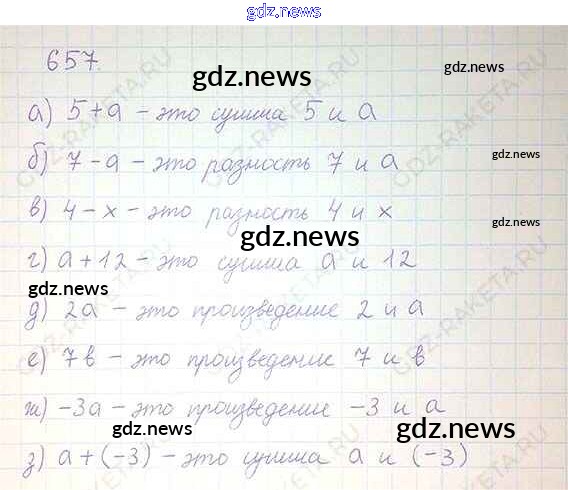 gdz.news
657.
gdz.news
gdz.news
а) 5+a – это сумма 5 и a
б) 7-a – это разность 7 и a
gdz.news
в) 4-x – это разность 4 и x
gdz.news
gdz.news
г) a+12 – это сумма a и 12
gdz.news
д) 2a – это произведение 2 и a
е) 7в – это произведение 7 и в
ж) -3a – это произведение -3 и a
gdz.news
gdz.news
з) a+(-3) – это сумма a и (-3)
GDZ-RAKETA.RU
GDZ-RAKETA.RU
GDZ-RAKETA.RU
GDZ-RAKETA.RU